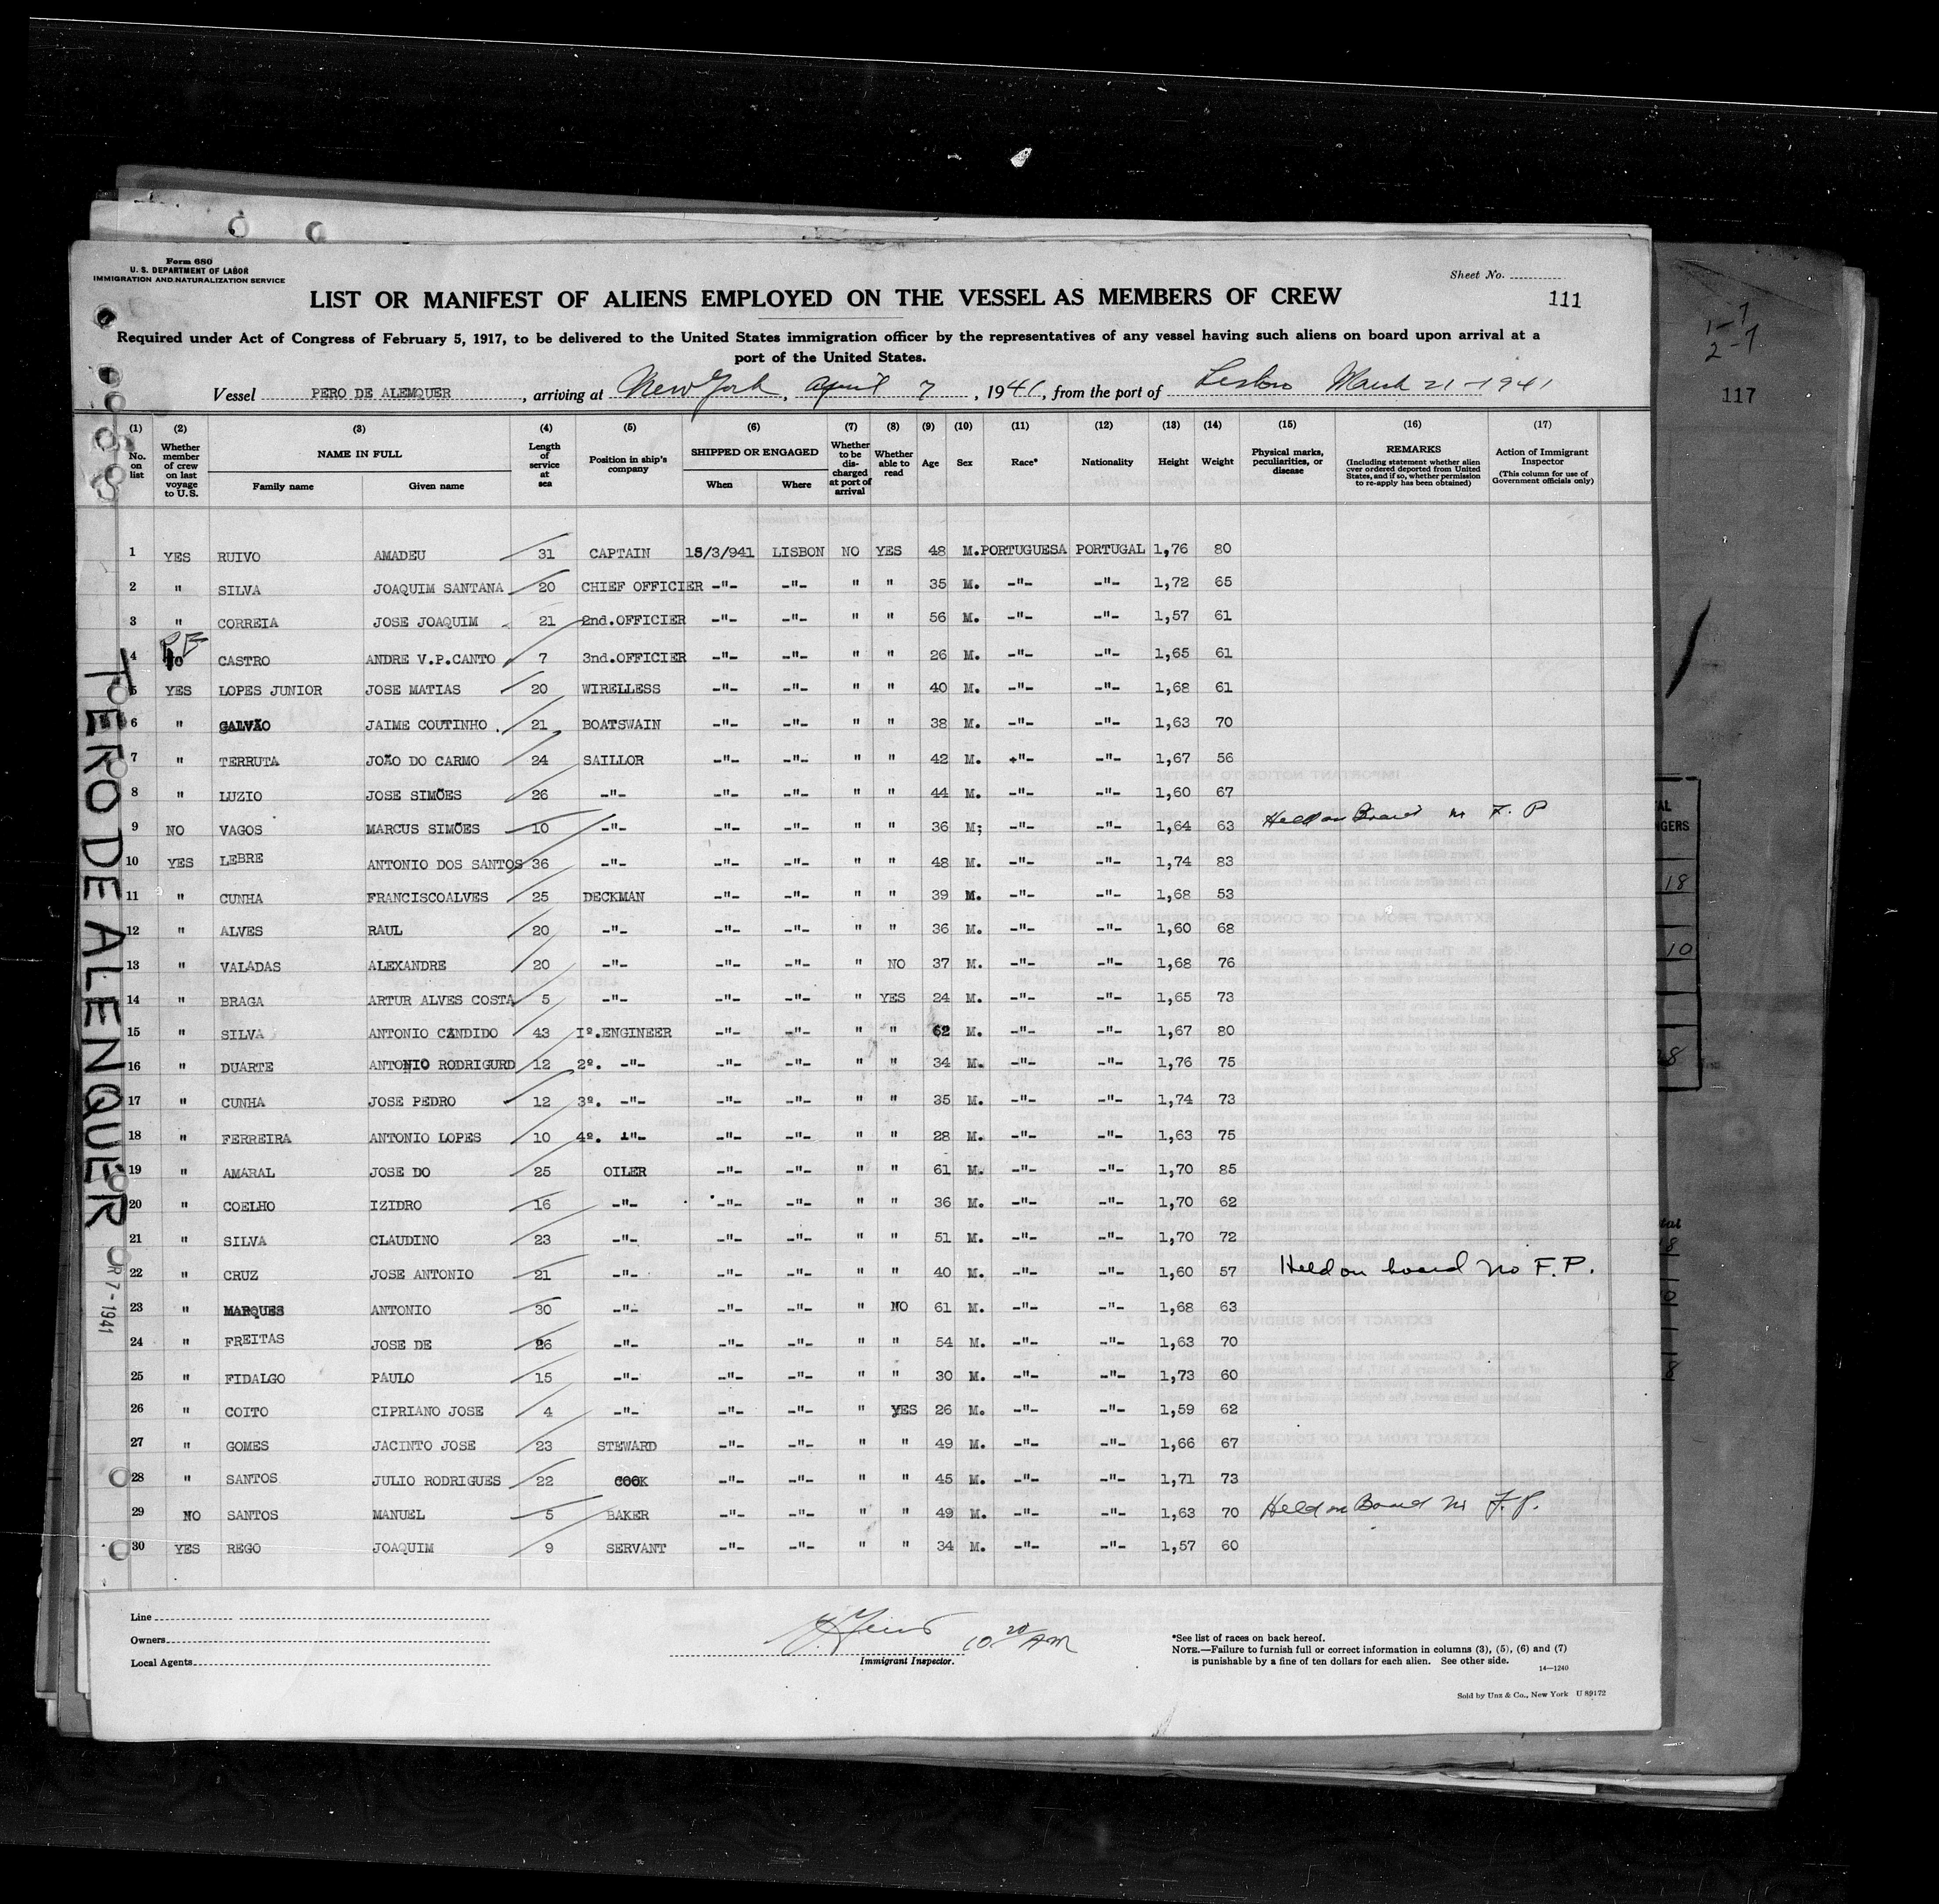 Form 680
U. S. DEPARTMENT OF LABOR
IMMIGRATION AND NATURALIZATION SERVICE
Sheet No.
LIST OR MANIFEST OF ALIENS EMPLOYED ON THE VESSEL AS MEMBERS OF CREW
111
Required under Act of Congress of February 5, 1917, to be delivered to the United States immigration officer by the representatives of any vessel having such aliens on board upon arrival at a
port of the United States.
Vessel PERO DE ALEMQUER, arriving at New York, April 7, 1941, from the port of Lisbon March 21-1941
(1) No. on list
(2) Whether member of crew on last voyage to U.S.
(3) NAME IN FULL Family name Given name
(4) Length of service at sea
(5) Position in ship's company
(6) SHIPPED OR ENGAGED When Where
(7) Whether to be discharged at port of arrival
(8) Whether able to read
(9) Age
(10) Sex
(11) Race*
(12) Nationality
(13) Height
(14) Weight
(15) Physical marks, peculiarities, or disease
(16) REMARKS (Including statement whether alien ever ordered deported from United States, and if so, whether permission to re-apply has been obtained)
(17) Action of Immigrant Inspector (This column for use of Government officials only)
1 YES RUIVO AMADEU 31 CAPTAIN 18/3/941 LISBON NO YES 48 M. PORTUGUESA PORTUGAL 1,76 80
2 " SILVA JOAQUIM SANTANA 20 CHIEF OFFICIER -"- -"- " " 35 M. -"- -"- 1,72 65
3 " CORREIA JOSE JOAQUIM 21 2nd.OFFICIER -"- -"- " " 56 M. -"- -"- 1,57 61
4 CASTRO ANDRE V.P.CANTO 7 3nd.OFFICIER -"- -"- " " 26 M. -"- -"- 1,65 61
5 YES LOPES JUNIOR JOSE MATIAS 20 WIRELLESS -"- -"- " " 40 M. -"- -"- 1,68 61
6 " GALVÃO JAIME COUTINHO . 21 BOATSWAIN -"- -"- " " 38 M. -"- -"- 1,63 70
7 " TERRUTA JOÃO DO CARMO 24 SAILLOR -"- -"- " " 42 M. -"- -"- 1,67 56
8 " LUZIO JOSE SIMÕES 26 -"- -"- -"- " " 44 M. -"- -"- 1,60 67
9 NO VAGOS MARCUS SIMÕES 10 -"- -"- -"- " " 36 M; -"- -"- 1,64 63 Held on Board no F. P
10 YES LEBRE ANTONIO DOS SANTOS 36 -"- -"- -"- " " 48 M. -"- -"- 1,74 83
11 " CUNHA FRANCISCOALVES 25 DECKMAN -"- -"- " " 39 M. -"- -"- 1,68 53
12 " ALVES RAUL 20 -"- -"- -"- " " 36 M. -"- -"- 1,60 68
13 " VALADAS ALEXANDRE 20 -"- -"- -"- " NO 37 M. -"- -"- 1,68 76
14 " BRAGA ARTUR ALVES COSTA 5 -"- -"- -"- " YES 24 M. -"- -"- 1,65 73
15 " SILVA ANTONIO CANDIDO 43 Iº.ENGINEER -"- -"- " " 62 M. -"- -"- 1,67 80
16 " DUARTE ANTONIO RODRIGURD 12 2º. -"- -"- -"- " " 34 M. -"- -"- 1,76 75
17 " CUNHA JOSE PEDRO 12 3º. -"- -"- -"- " " 35 M. -"- -"- 1,74 73
18 " FERREIRA ANTONIO LOPES 10 4º. -"- -"- -"- " " 28 M. -"- -"- 1,63 75
19 " AMARAL JOSE DO 25 OILER -"- -"- " " 61 M. -"- -"- 1,70 85
20 " COELHO IZIDRO 16 -"- -"- -"- " " 36 M. -"- -"- 1,70 62
21 " SILVA CLAUDINO 23 -"- -"- -"- " " 51 M. -"- -"- 1,70 72
22 " CRUZ JOSE ANTONIO 21 -"- -"- -"- " " 40 M. -"- -"- 1,60 57 Held on board no F.P.
23 " MARQUES ANTONIO 30 -"- -"- -"- " NO 61 M. -"- -"- 1,68 63
24 " FREITAS JOSE DE 26 -"- -"- -"- " " 54 M. -"- -"- 1,63 70
25 " FIDALGO PAULO 15 -"- -"- -"- " " 30 M. -"- -"- 1,73 60
26 " COITO CIPRIANO JOSE 4 -"- -"- -"- " YES 26 M. -"- -"- 1,59 62
27 " GOMES JACINTO JOSE 23 STEWARD -"- -"- " " 49 M. -"- -"- 1,66 67
28 " SANTOS JULIO RODRIGUES 22 COOK -"- -"- " " 45 M. -"- -"- 1,71 73
29 NO SANTOS MANUEL 5 BAKER -"- -"- " " 49 M. -"- -"- 1,63 70 Held on Board no F.P.
30 YES REGO JOAQUIM 9 SERVANT -"- -"- " " 34 M. -"- -"- 1,57 60
PERO DE ALENQUER
R 7 - 1941
Line
Owners
Local Agents
10 20/ AM
Immigrant Inspector.
*See list of races on back hereof.
NOTE.—Failure to furnish full or correct information in columns (3), (5), (6) and (7)
is punishable by a fine of ten dollars for each alien. See other side.
14—1240
Sold by Unz & Co., New York U 89172
1-7
2-7
117
18
10